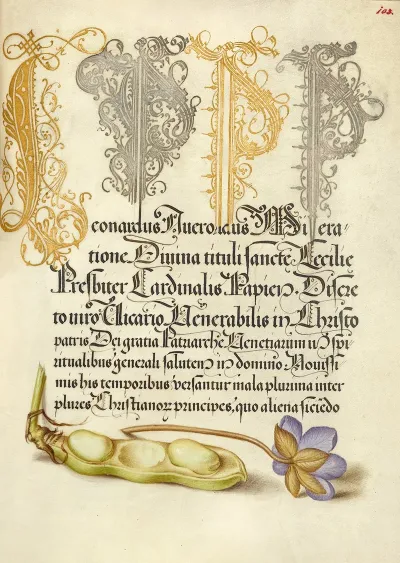 103.
L P P P
eonardus Nuerolcus Misera-
tione Divina tituli sancte Cecilie
Presbiter Cardinalis Papien. Discre
to viro Vicario Venerabilis in Christo
patris Dei gratia Patriarche Venetiarum in spi-
ritualibus generali salutem in domino. Novissi
mis his temporibus versantur mala plurima inter
plures Christianor principes, quo aliena siciedo